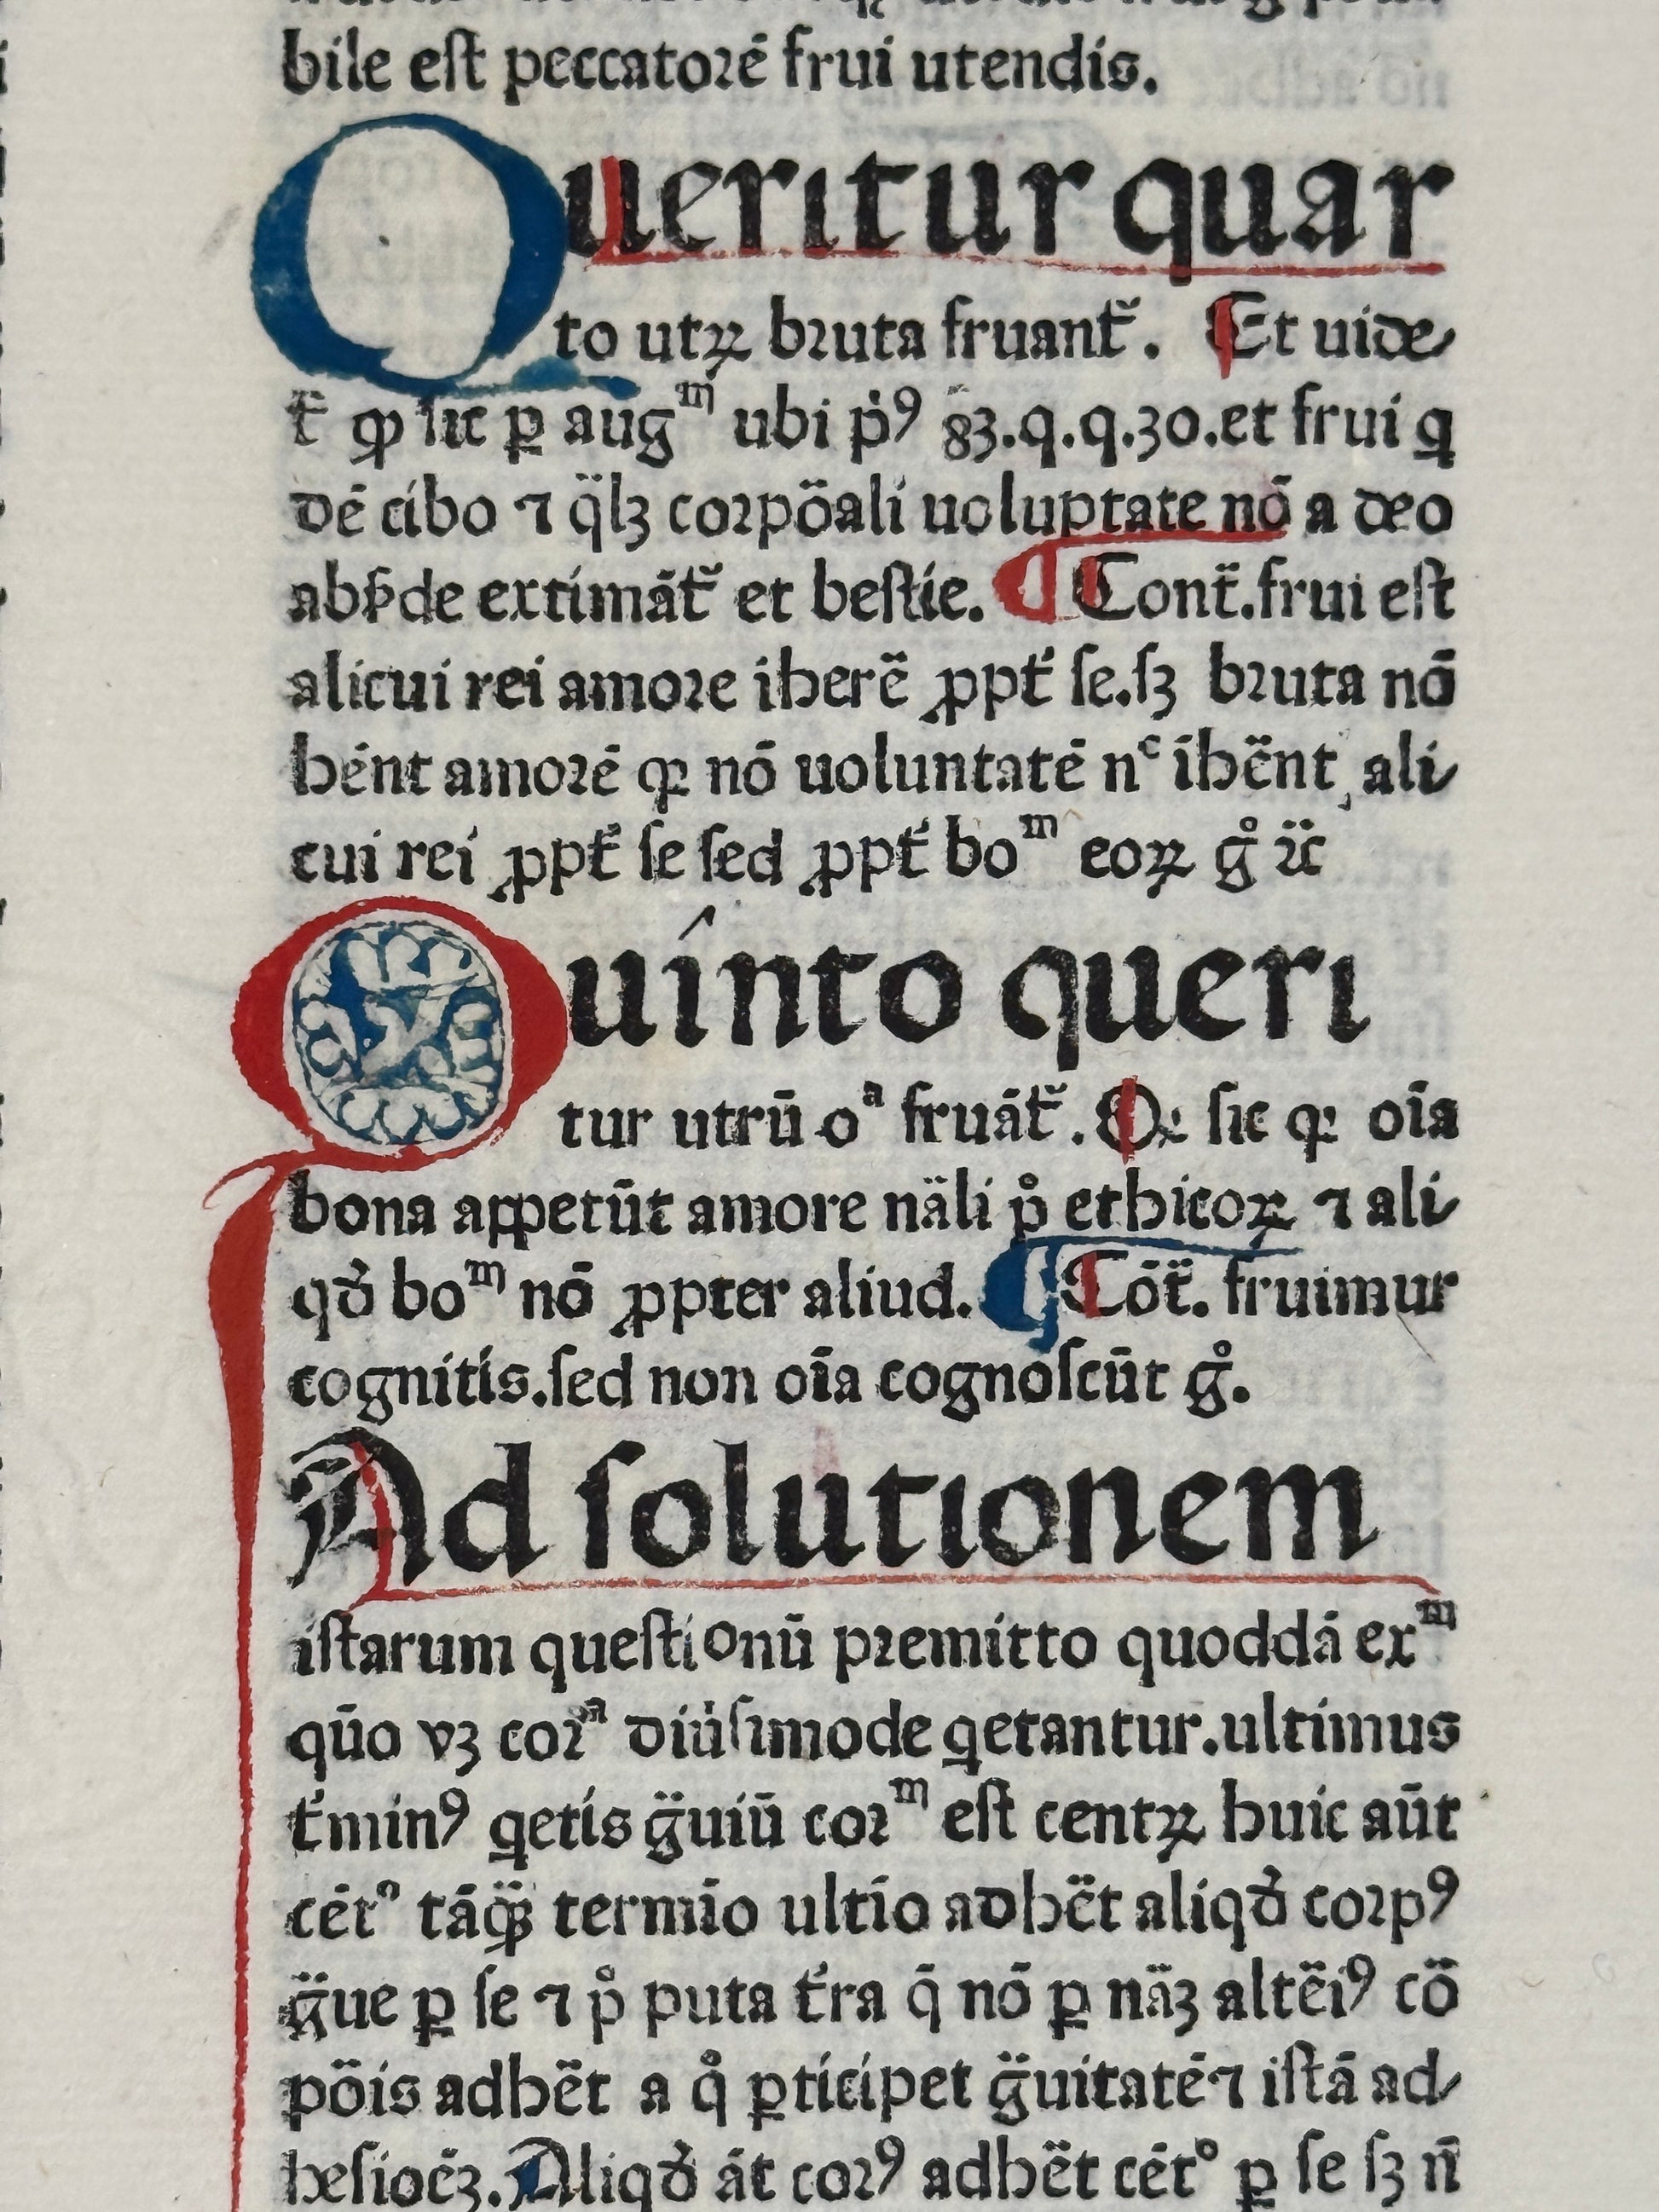 bile eſt peccatoꝛē frui utendis.
Querıtur quar
to utꝝ bꝛuta fruant᷑. Et uide
t᷑ ꝙ ſic ꝑ augᵐ ubi ṗꝰ 83.q.q.30.et frui q
dē cibo ⁊ q̈lꝫ coꝛpöali uoluptate nō a deo
abſde extimāt᷑ et beſtie. ¶ Cont̃.frui eſt
alicui rei amoꝛe iherẽ ꝓpt̉ ſe.ſꝫ bꝛuta nō
hēnt amoꝛē qꝛ nō uoluntatē nᶜ īhẽnt ali
cui rei ꝓpt̉ ſe ſed ꝓpt̉ boᵐ eoꝝ g̊ ïc̈
Quínto querı
tur utrū oᵃ fruāt᷑. Qꝛ ſic qꝛ oīa
bona appetūt amore näli p̊ ethicoꝝ ⁊ ali
qđ boᵐ nō ꝓpter aliud. ¶ Cōt̃. fruimur
cognitis.ſed non oīa cognoſcūt g̊.
Ad ſolutıonem
iſtarum queſtionū pꝛemitto quoddā exᵐ
qūo vꝫ coꝛᵃ diủſimode q̨etantur.ultimus
t̉minꝰ q̨etis g̈uiū coꝛᵐ eſt centꝝ huic aūt
cētᵒ tāq̈ꝫ termīo ultīo adhẽt aliqđ coꝛpꝰ
g̈ue ꝑ ſe ⁊ p̊ puta t̉ra q̄ nō ꝑ näꝫ altẽiꝰ cö
pöis adhẽt a q̊ ꝑticipet g̈uitatē ⁊ iſtā ad
heſioēꝫ. Aliqđ āt coꝛꝰ adhẽt cētᵒ ꝑ ſe ſꝫ n̄